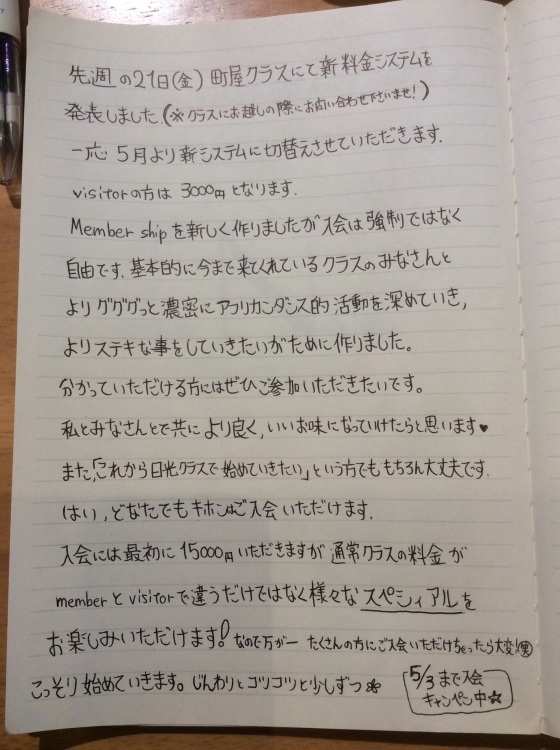 先週の21日(金) 町屋クラスにて新料金システムを
発表しました。(※クラスにお越しの際にお問い合わせ下さいませ!)
一応 5月より新システムに切替えさせていただきます。
visitorの方は 3000円となります。
Member shipを新しく作りましたが入会は強制ではなく
自由です。基本的に今まで来てくれているクラスのみなさんと
よりグググっと濃密にアフリカンダンス的活動を深めていき,
よりステキな事をしていきたいがために作りました。
分かっていただける方にはぜひご参加いただきたいです。
私とみなさんとで共により良く,いいお味になっていけたらと思います♥
また,「これから日光クラスで始めていきたい」という方でももちろん大丈夫です。
はい,どなたでもキホンはご入会いただけます。
入会には最初に 15000円いただきますが 通常クラスの料金が
memberとvisitorで違うだけではなく様々なスペシィアルを
お楽しみいただけます! なので万が一 たくさんの方にご入会いただけちゃったら大変!笑
こっそり始めていきます。じんわりとコツコツと少しずつ
5/3まで入会
キャンペン中☆